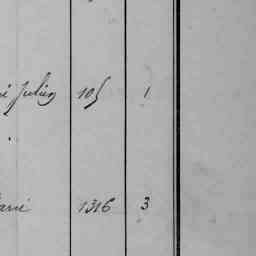 Julien 105 1
1316 3